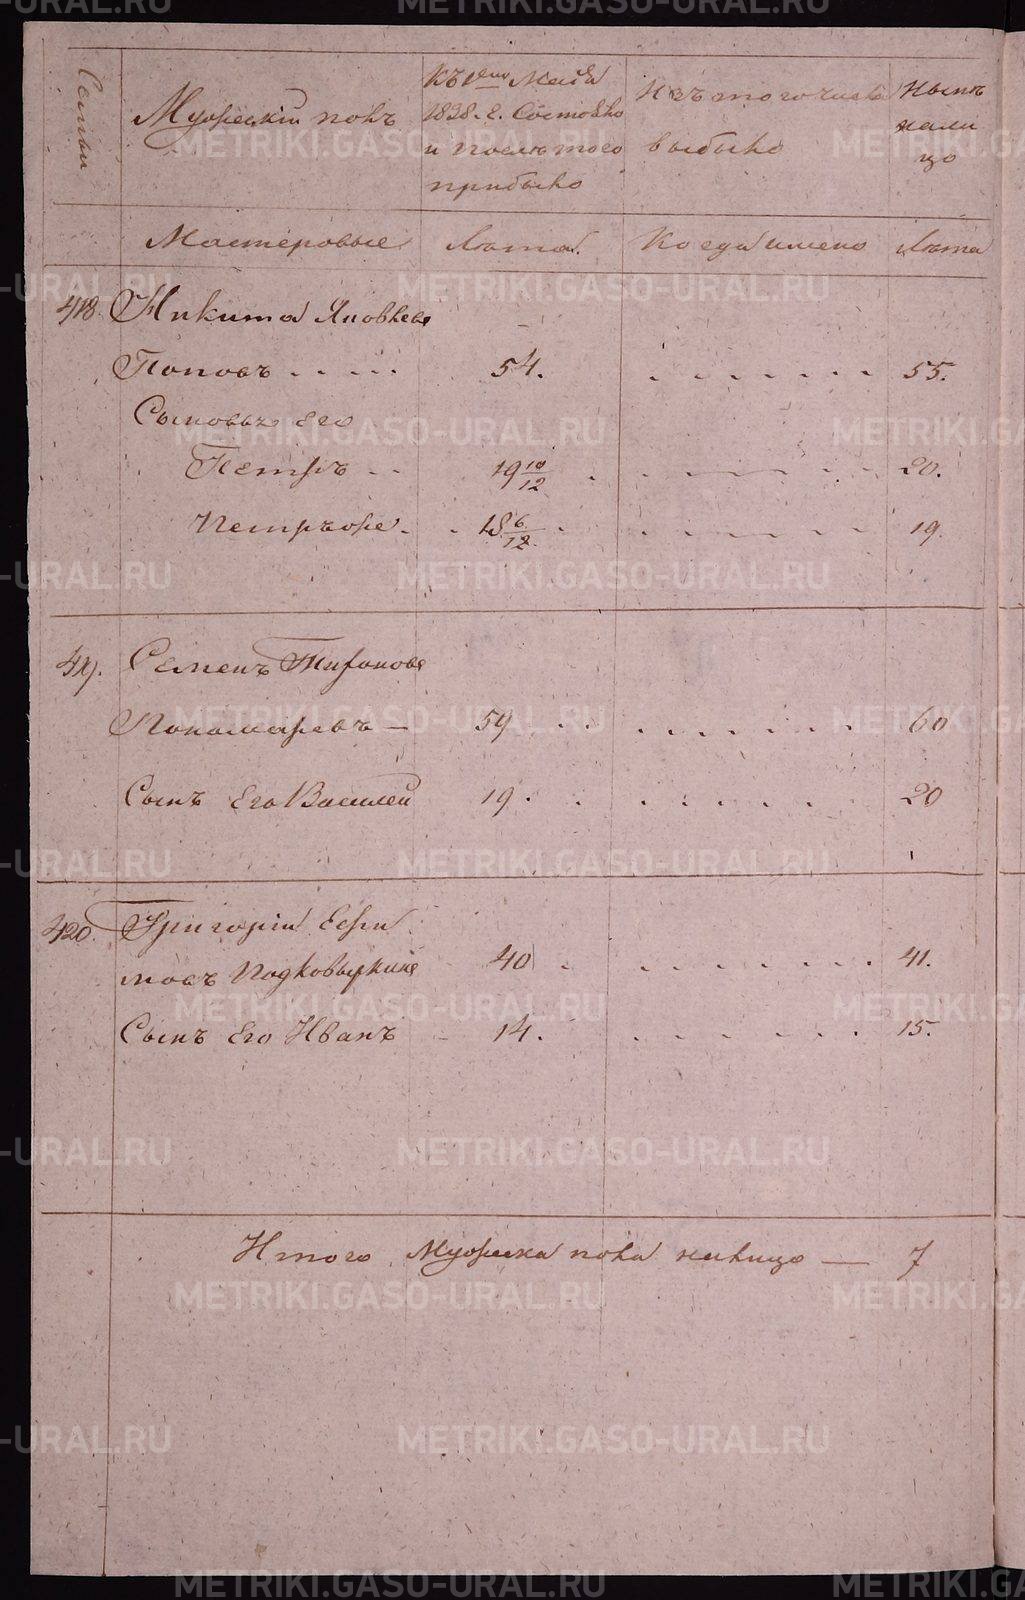 Семьи
Мужескій полъ
Къ 1ему Маія
1838. г. Состояло
и после того
прибыло
Изъ того числа
выбыло
Нынѣ
нали
цо
Мастеровые
Лѣта.
Когда имено
Лѣта
418. Никита Яковлевъ
Поповъ 54. 55.
Сыновья Его
Петръ 19 10/12 20.
Петръ же 18 6/12 19.
419. Семенъ
Пономаревъ — 59 60
Сынъ Его Василей 19. 20
420. Григорій Ефи
мовъ Подковыркинъ 40 41.
Сынъ Его Иванъ 14. 15.
Итого Мужеска пола налицо — 7
METRIKI.GASO-URAL.RU